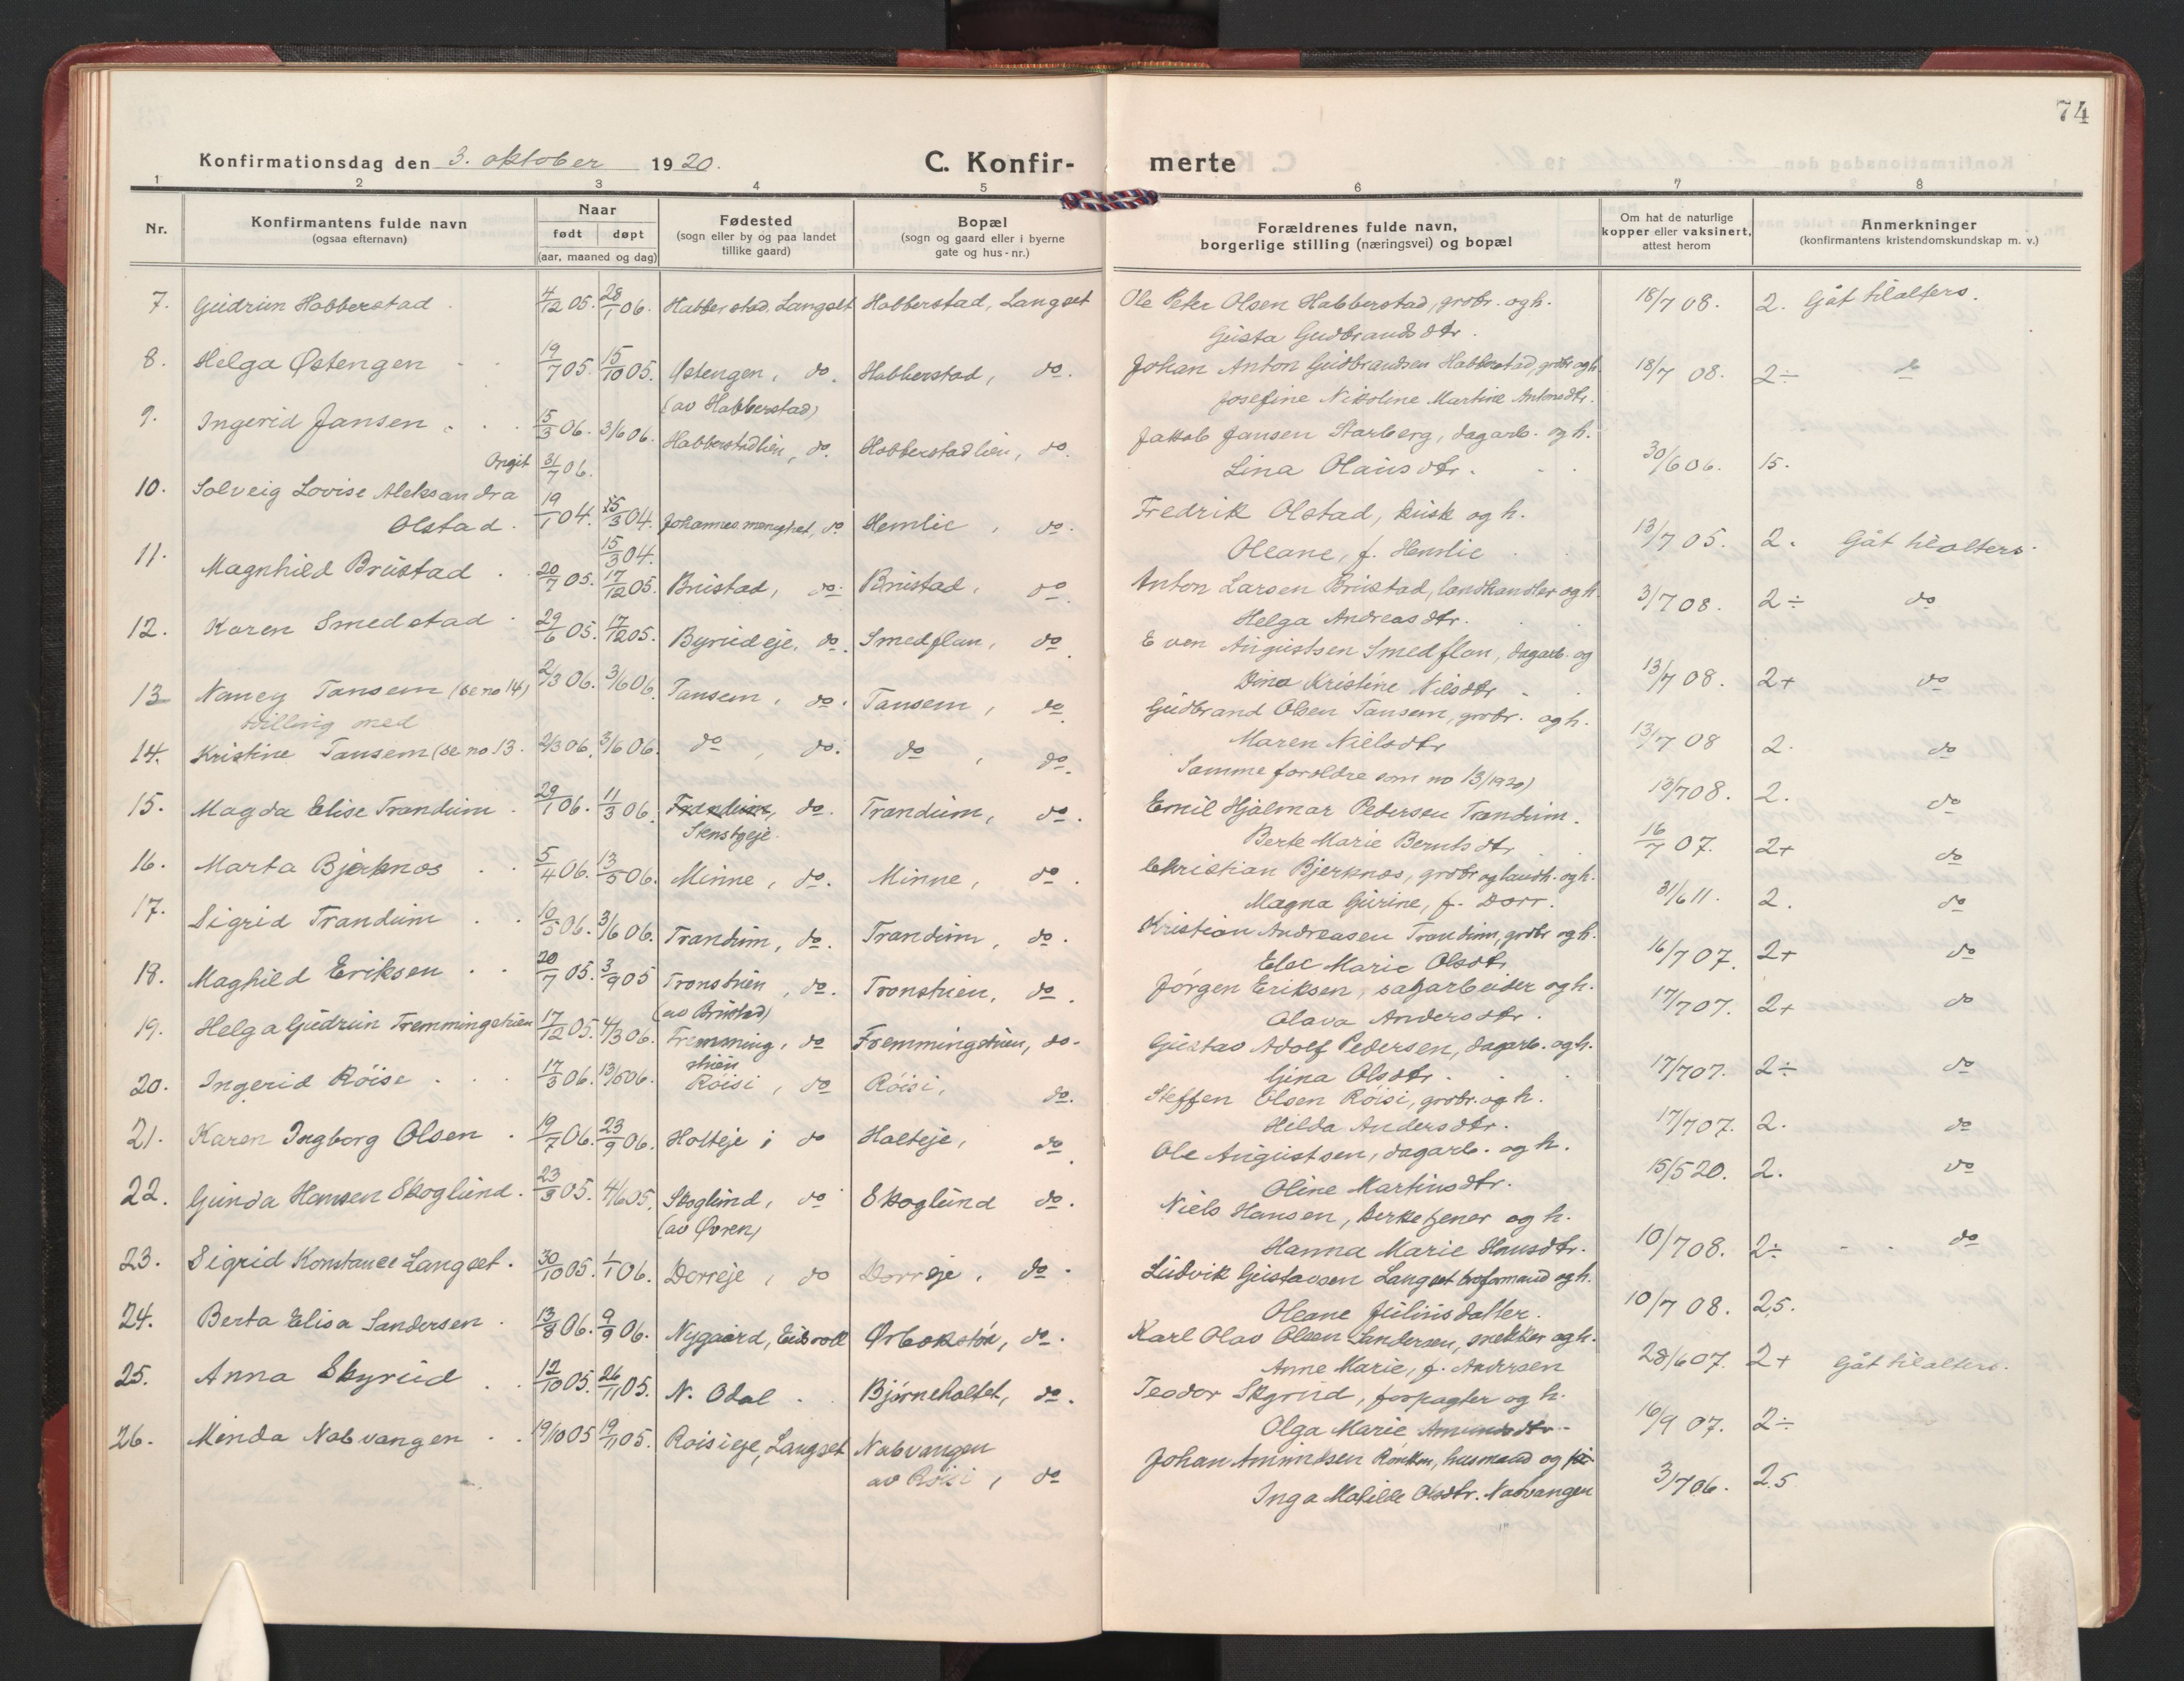 74
Konfirmationsdag den 3. oktober 1920. C. Konfir- merte
1 2 3 4 5 6 7 8
Nr. Konfirmantens fulde navn (ogsaa efternavn) Naar født døpt (aar, maaned og dag) Fødested (sogn eller by og paa landet tillike gaard) Bopæl (sogn og gaard eller i byerne gate og hus-nr.) Forældrenes fulde navn, borgerlige stilling (næringsvei) og bopæl Om hat de naturlige kopper eller vaksinert, attest herom Anmerkninger (konfirmantens kristendomskundskap m. v.)
7. Gudrun Habberstad 4/12 05. 28/1 06. Habberstad, Langset Habberstad, Langset Ole Peter Olsen Habberstad, grdbr. og h. 18/7 08. 2. Gåt til alters.
Gusta Gudbrandsdtr.
8. Helga Østengen 19/7 05. 15/10 05. Østengen, do. Habberstad, do. Johan Anton Gudbrandsen Habberstad, grdbr og h. 18/7 08. 2÷ do
(av Habberstad) Josefine Nikoline Martine Antonsdtr.
9. Ingerid Jansen 15/3 06. 3/6 06. Habberstadlien, do. Habberstadlien, do. Jakob Jansen Starberg, dagarb. og h.
Angit 31/7 06. Lina Olausdtr. 30/6 06. 15.
10. Solveig Lovise Aleksandra
Olstad. 19/1 04. 15/3 04. Johannes menighet, do Hemlie, do. Fredrik Olstad, kusk og h.
15/3 04. Oleane, f. Hemlie 13/7 05. 2. Gåt til alters.
11. Magnhild Brustad 20/7 05. 17/12 05. Brustad, do. Brustad, do. Anton Larsen Brustad, landhandler og h. 3/7 08. 2÷ do
Helga Andreasdtr.
12. Karen Smedstad 29/6 05. 17/12 05. Byrudeje, do. Smedflan, do Even Augustsen Smedflan, dagarb. og
Dina Kristine Nilsdtr 13/7 08. 2+ do
13 Nancy Tansem (se no 14) 2/3 06. 3/6 06. Tansem, do. Tansem, do Gudbrand Olsen Tansem, grdbr. og h.
tvilling med Maren Nielsdtr 13/7 08 2. do
14. Kristine Tansem (se no 13. 2/3 06. 3/6 06. do, do. do, do. Samme foreldre som no 13/1920) 13/7 08. 2. do
15. Magda Elise Trandum 29/1 06. 11/3 06. Trandum, do. Trandum, do. Emil Hjalmar Pedersen Trandum.
Stensbyeje. Berte Marie Berntsdtr 16/7 07. 2+ do
16. Marta Bjerknes 5/4 06. 13/5 06. Minne, do. Minne, do. Christian Bjerknes, grdbr og landh. og h.
Magna Gurine, f. Dorr. 31/6 11. 2. do
17. Sigrid Trandum 10/5 06. 3/6 06. Trandum, do. Trandum, do. Kristian Andreasen Trandum, grdbr og h.
Else Marie Olsdtr 16/7 07. 2+ do
18. Maghild Eriksen 20/7 05. 3/9 05 Tronstuen, do. Tronstuen, do. Jørgen Eriksen, sagarbeider og h.
(av Brustad) Olava Andersdtr. 17/7 07. 2+ do
19. Helga Gudrun Tremmingstuen 17/12 05. 4/3 06. Fremming, do Fremmingstuen, do. Gustav Adolf Pedersen, dagarb. og h.
stuen Gina Olsdtr. 17/7 07. 2÷ do
20. Ingerid Røise 17/3 06. 13/5 06. Røisi, do Røisi, do. Steffen Olsen Røisi, grdbr. og h.
Hilda Andersdtr. 17/7 07. 2. do
21. Karen Ingborg Olsen 19/7 06. 23/9 06. Holteje, do Holteje, do Ole Augustsen, dagarb. og h.
Oline Martinsdtr. 15/5 20. 2. do
22. Gunda Hansen Skoglund. 23/3 05. 4/6 05. Skoglund, do Skoglund do. Niels Hansen, kirketjener og h.
(av Øvren) Hanna Marie Hansdtr. 10/7 08. 2÷ do
23. Sigrid Konstance Langset. 30/10 05. 1/1 06. Dorreje, do Dorreje, do. Ludvik Gustavsen Langset broformand og h.
Oleane Juliusdatter. 10/7 08. 2,5.
24. Berta Elisa Sandersen 13/8 06. 9/9 06. Nygaard, Eidsvoll Ørbakstøe, do. Karl Olav Olsen Sandersen, snekker og h.
Anne Marie, f. Andersen 28/6 07. 2+ Gåt til alters.
25. Anna Skyrud 12/10 05. 26/11 05. N. Odal Bjørneholtet, do. Teodor Skyrud, forpagter og h.
Olga Marie Amundsdtr. 16/9 07. 2÷
26. Minda Nabvangen 19/10 05 19/11 05. Røisieje, Langset Nabvangen Johan Amundsen Rønken, husmand og
av Røisi, do Inga Matilde Olsdtr. Nabvangen 3/7 06. 2.5